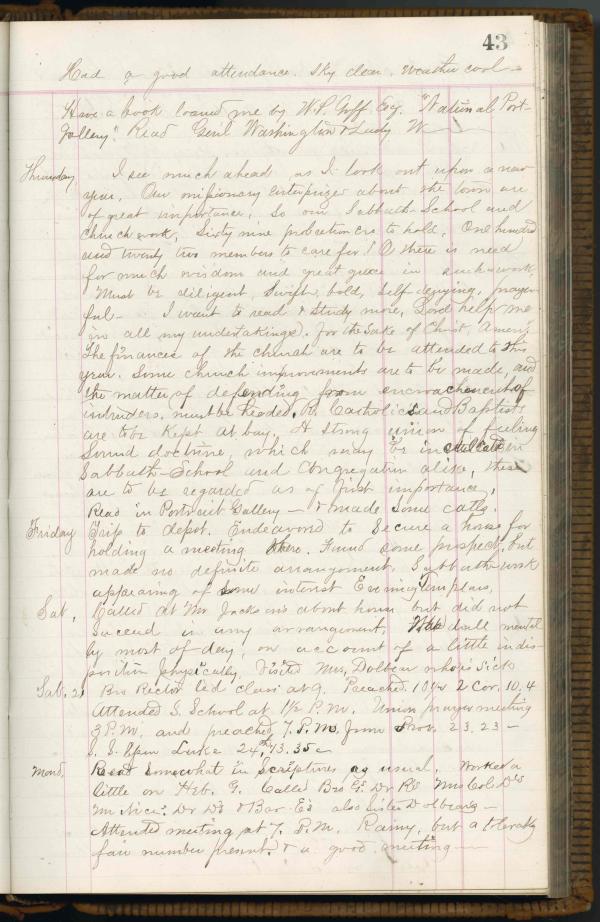 43
Had a good attendance. Sky clear. Weather cool -
Have a book loaned me by W.P. Goff Esq. "National Port-
Gallery". Read Genl Washington & Lady W
Thursday I see much ahead as I look out upon a new
year. Our missionary enterprizes about the town are
of great importance, so our Sabbath-School and
church work, Sixty nine probationers to hold, One hundred
and twenty two members to care for! O there is need
for much wisdom and great grace in such work.
Must be diligent, Swift, bold, self-denying, prayer-
ful - I want to read & study more, Lord help me
in all my undertakings. For the sake of Christ. Amen.
The finances of the church are to be attended to this
year. Some church improvements are to be made, and
the matter of defending from encroachments of
intruders, must be headed, the Catholics and Baptists
are to be kept at bay. A strong union of feeling
Sound doctrine, which may be inculcated in
Sabbath-School and Congregation alike, these
are to be regarded as of first importance,
Read in Portrait Gallery - & made some calls.
Friday Trip to depot. Endeavord to secure a house for
holding a meeting there. Found some prospect, but
made no definite arrangement. Sabbath work
appearing of some interest Evening Templars,
Sat, Called at Mr Jacksons about house but did not
succeed in any arrangement, dull mental
ly most of day, on account of a little indis-
position physically. Visited Mrs, Dolbear who is sick
Sab. 2 Bro Rector led class at 9. Preached. 10 1/2 2 Cor. 10, 4
Attended S. School at 1 1/2 P.M. Union prayer meeting
3 P.M. and preached 7. P.M. from Prov. 23, 23 -
S. S. upon Luke 24th, 13. 35 -
Mond. Read somewhat in Scriptures, as usual. Worked a
little on Heb. G. Called Bro G's Dr R's Mrs Col. D's
Mr Nice's Dr D's & Bar. E's also sister Dolbears -
Attended meeting, at 7. P.M. Rainy, but a tolerably
fair number present, & a good meeting -